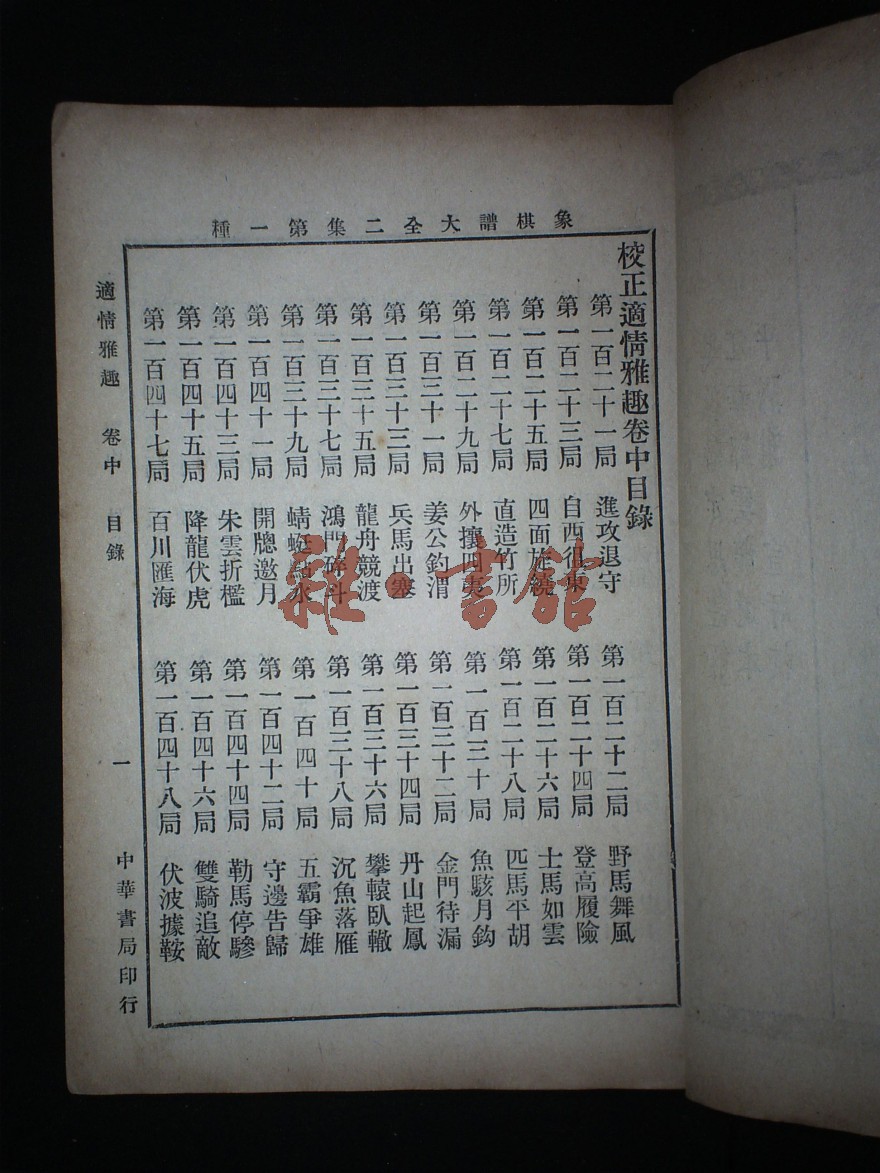 象棋譜大全二集第一種
校正適情雅趣卷中目錄
第一百二十一局 進攻退守 第一百二十二局 野馬舞風
第一百二十三局 自西徂東 第一百二十四局 登高履險
第一百二十五局 四面旋繞 第一百二十六局 士馬如雲
第一百二十七局 直造竹所 第一百二十八局 匹馬平胡
第一百二十九局 外攘四夷 第一百三十局 魚駭月鈎
第一百三十一局 姜公釣渭 第一百三十二局 金門待漏
第一百三十三局 兵馬出塞 第一百三十四局 丹山起鳳
第一百三十五局 龍舟競渡 第一百三十六局 攀轅臥轍
第一百三十七局 鴻門碎斗 第一百三十八局 沉魚落雁
第一百三十九局 蜻蜓點水 第一百四十局 五霸爭雄
第一百四十一局 開牕邀月 第一百四十二局 守邊告歸
第一百四十三局 朱雲折檻 第一百四十四局 勒馬停驂
第一百四十五局 降龍伏虎 第一百四十六局 雙騎追敵
第一百四十七局 百川匯海 第一百四十八局 伏波據鞍
適情雅趣 卷中 目錄 一 中華書局印行
雜·書館